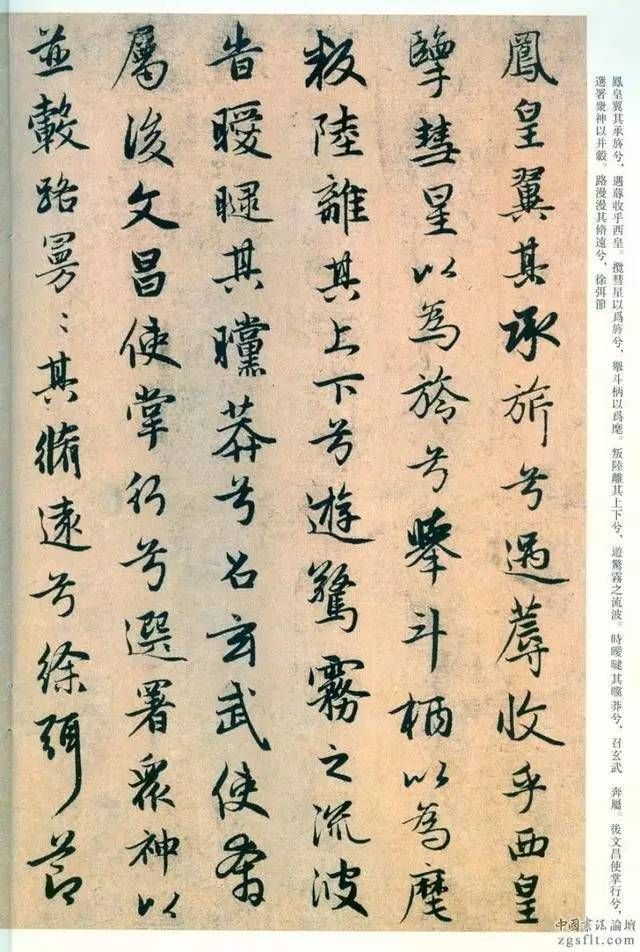 鳳皇翼其承旂兮，遇蓐收乎西皇。攬彗星以爲旍兮，舉斗柄以爲麾。叛陸離其上下兮，遊驚霧之流波。時曖曃其曭莽兮，召玄武　奔屬。後文昌使掌行兮，
選署衆神以并轂。路漫漫其脩遠兮，徐弭節
鳳皇翼其承旂兮遇蓐收乎西皇
擥彗星以為旍兮舉斗柄以為麾
叛陸離其上下兮遊驚霧之流波
旹曖曃其曭莽兮召玄武使奔
屬後文昌使掌行兮選署眾神以
並轂路曼〻其脩遠兮徐弭節
中國書法論壇
zgsflt.com